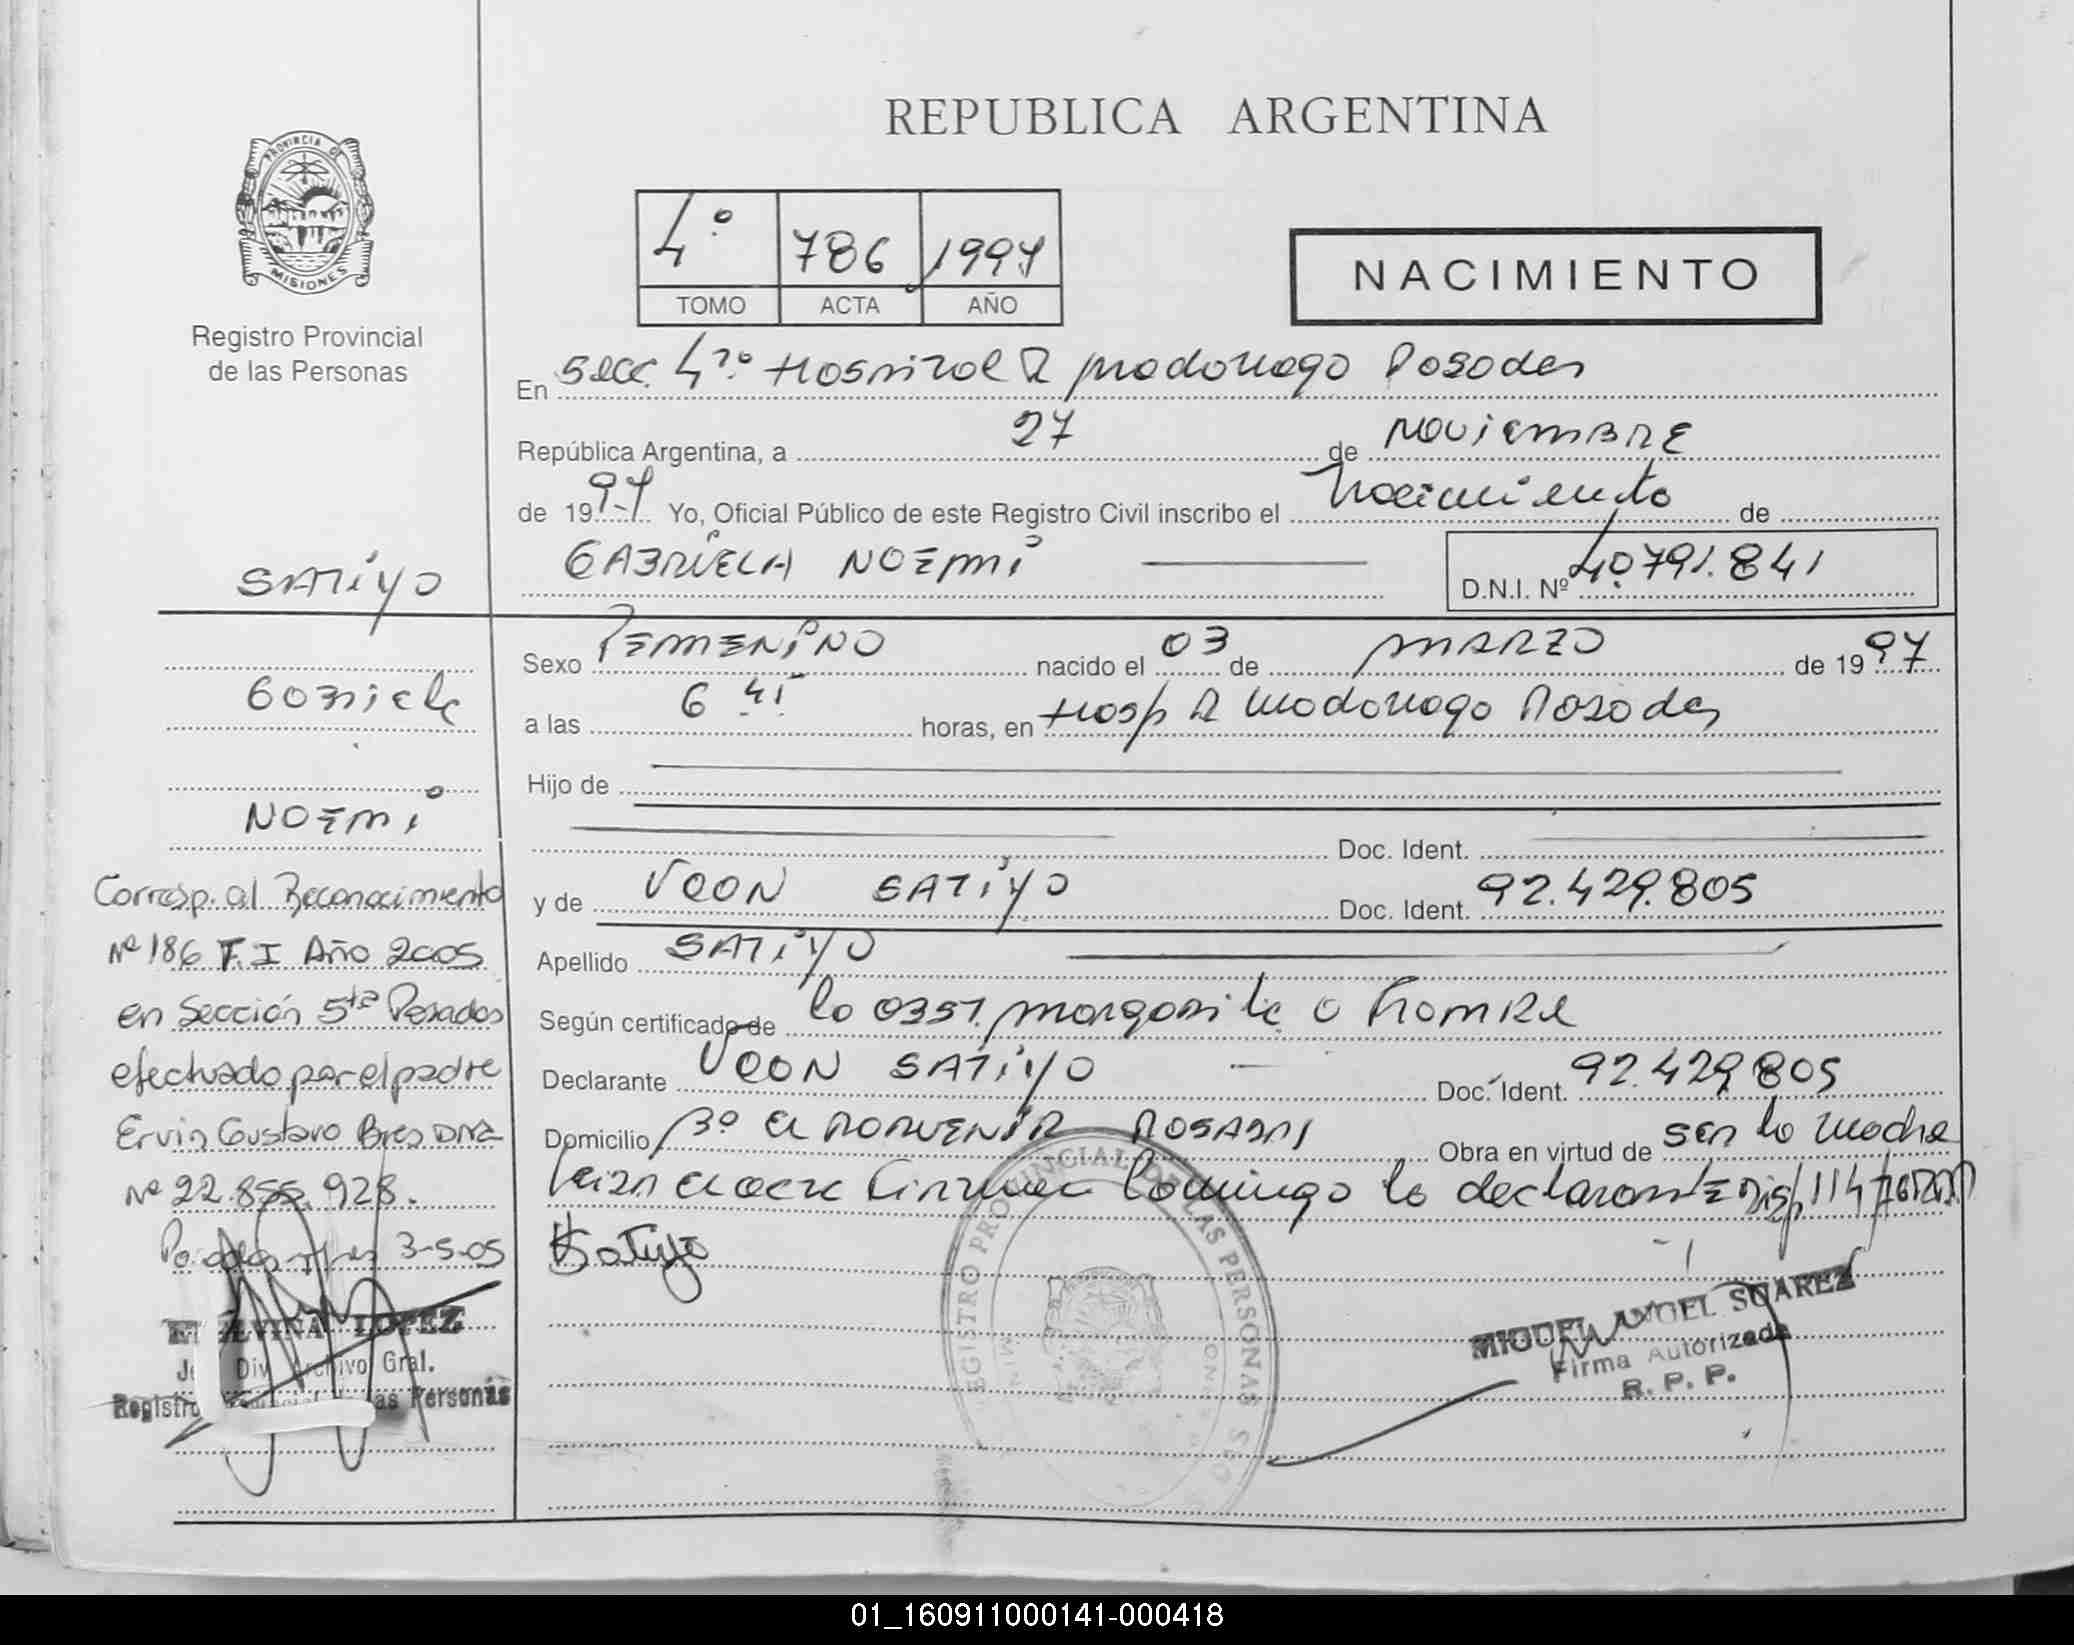 REPUBLICA ARGENTINA
PROVINCIA DE
MISIONES
Registro Provincial
de las Personas
4º 786 1997
TOMO ACTA AÑO
NACIMIENTO
En Secc. 4ta. Hospital R Madariaga Posadas
República Argentina, a 27 de NOViEMBRE
de 1997 Yo, Oficial Público de este Registro Civil inscribo el Nacimiento de
GABRiELA NOEMi
D.N.I. Nº 40.791.841
Sexo FEMENiNO nacido el 03 de MARZO de 1997
a las 6 45 horas, en Hosp R Madariaga Posadas
Hijo de
Doc. Ident.
y de SATiYO Doc. Ident. 92.429.805
Apellido SATiYO
Según certificado de la Obst. Margarita
Declarante SATiYO Doc. Ident. 92.429.805
Domicilio Bº El PORVENIR POSADAS Obra en virtud de ser la madre
Domingo la declarante Disp 114
SATiYO
Gabriela
NOEMi
Corresp. al Reconocimiento
Nº 186 T. I Año 2005
en Sección 5ta Posadas
efectuado por el padre
Ervin Gustavo
Nº 22.855.928.
Posadas 3-5-05
LOPEZ
Div. Archivo Gral.
Registro las Personas
REGISTRO PROVINCIAL DE LAS PERSONAS
MIGUEL ANGEL SUAREZ
Firma Autorizada
R. P. P.
01_160911000141-000418